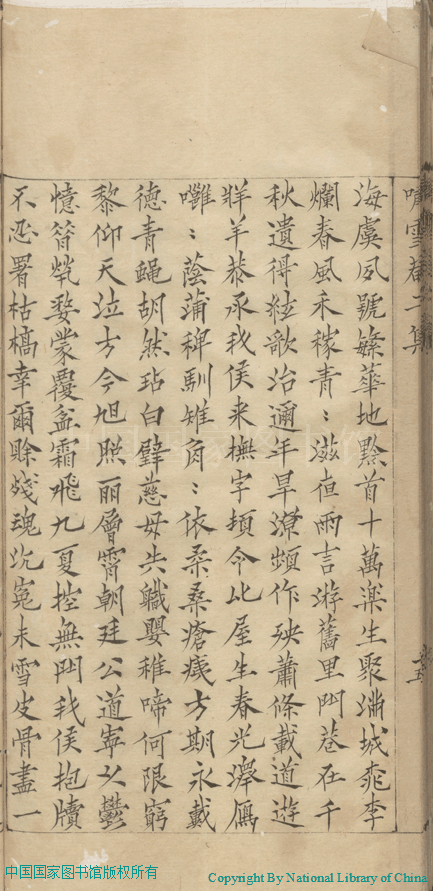 嘯雪菴二集
海虞夙號繁華地黔首十萬樂生聚滿城桃李
爛春風禾稼青：滋夜雨言游舊里門巷在千
秋遺得絃歌治邇年旱潦頻作殃蕭條載道遊
牂羊恭承我侯来撫字頓令比屋生春光澤鴈
嗷：蔭蒲稗馴雉角：依柔桑瘡痍方期永戴
德青蠅胡然玷白璧慈母失職嬰稚啼何限窮
黎仰天泣方今旭照麗層霄朝廷公道寧以鬱
憶昔煢嫠蒙覆盆霜飛九夏控無門我侯抱牘
不忍署枯槁幸爾賒殘魂沉冤未雪皮骨盡一
中国国家图书馆版权所有
Copyright By National Library of China